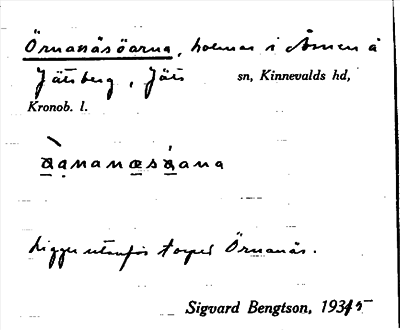 Örnanäsöarna, holmar i Åsnen å
Jätsberg, Jäts sn, Kinnevalds hd,
Kronob. l.
a̠ạnanæ̠sa̠ana
Ligger utanför torpet Örnanäs.
Sigvard Bengtson, 1935